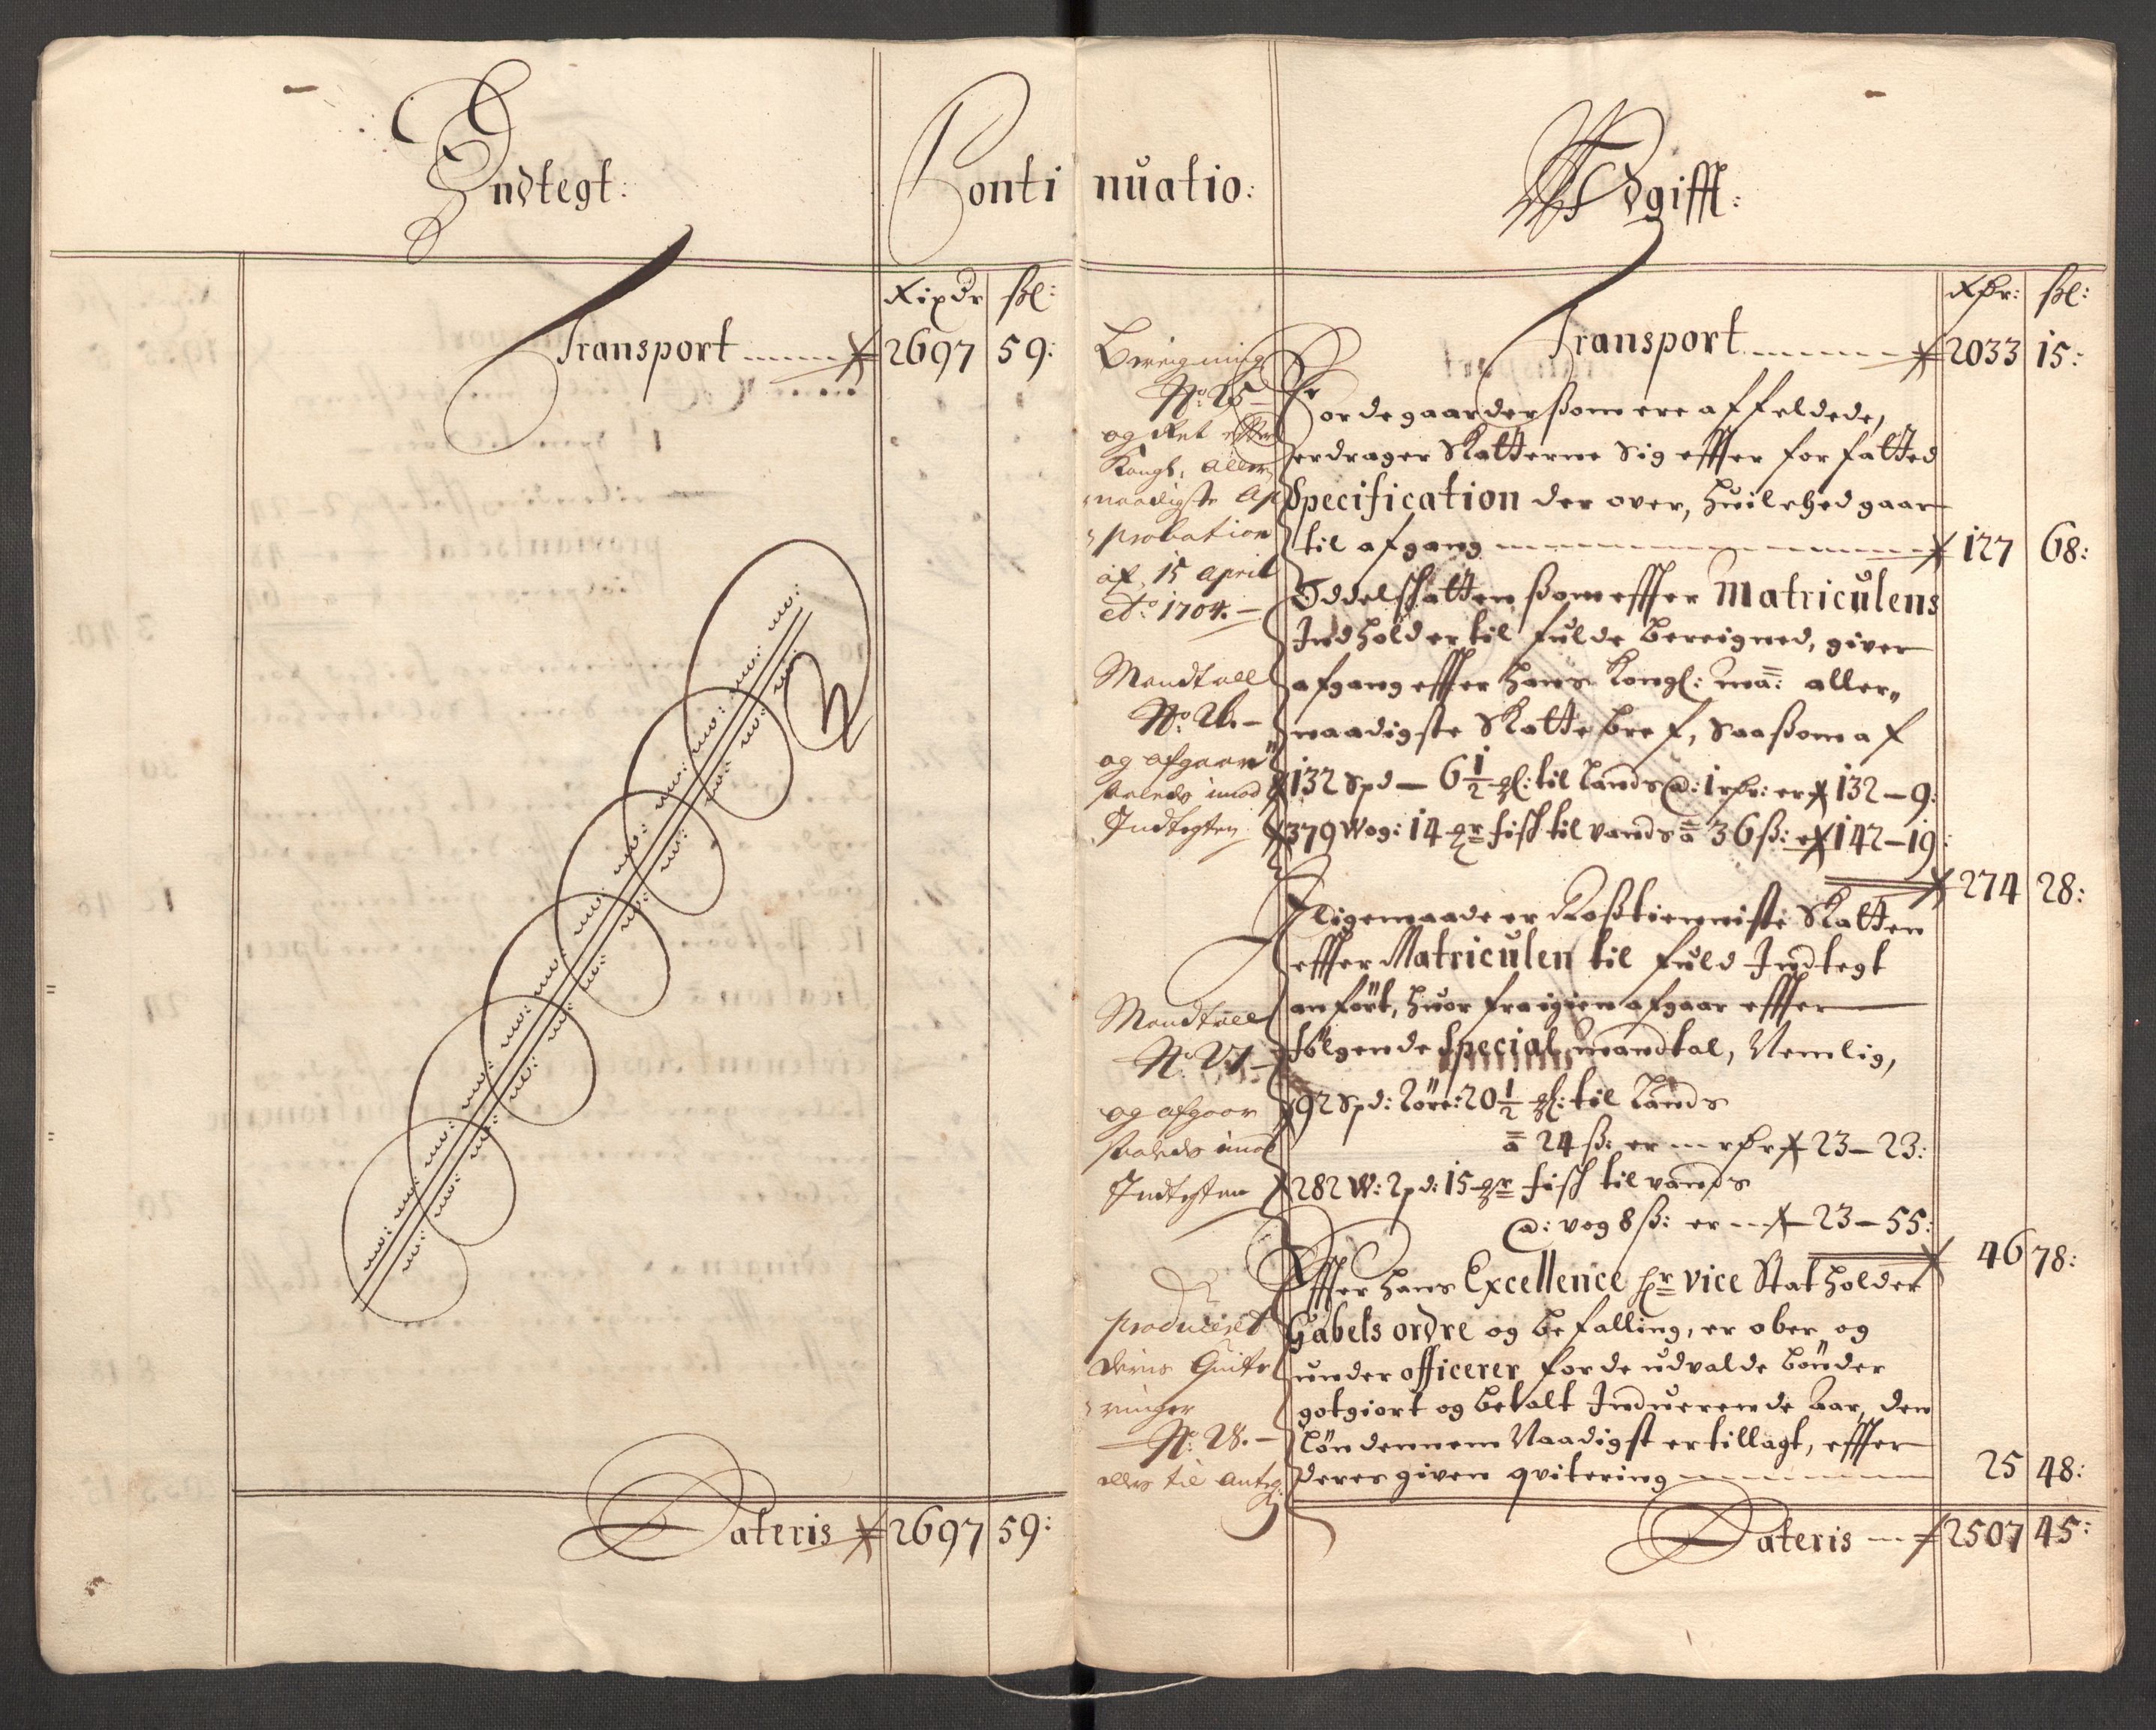 Indtegt:
Continuatio:
Udgifft:
Rixdr ßl:
Transport 2697 59:
Lateris 2697 59:
Rdr: ßl:
Transport 2033 15:
Beregning
No: 25
og Det effter
Kongl. aller
naadigste Ap
probation
af 15 april
Ao: 1704.
For de gaarder ßom ere affeldede,
erdrager Skatterne Sig effter forfatted
Specification der over, huilched gaar
til afgang 127 68:
Mandtall
No: 26.
og afgaar
saaleds imod
Indtegten
Oddelskatten ßom effter Matriculens
Indhold er til fulde bereigned, giver
afgang effter hans Kongl: Ma: aller„
naadigste Skattebref, Saaßom af
132 Spd — 6½ ℔: til Lands @: 1 rdr: er 132 – 9:
379 Wog: 14 ℔r fisk til vands a 36 ß: er 142 – 19:
274 28:
Mandtall
No. 27
og afgaar
saaleds imod
Indtegten
I ligemaade er Roßtienniste Skatten
effter Matriculen til fuld Indtegt
anført, huor fra igien afgaar effter
følgende Special mandtal, Nemlig,
92 Spd: Löre: 20½ ℔: til Lands
a 24 ß: er — rdr 23 – 23:
282 W: 2 pd: 15 ℔r fisk til vands
@: vog 8 ß: er 23 – 55:
46 78:
produceret
deris Quite
ringer
No: 28.
Effter hans Excellence Hr vice Statholder
Gabels ordre og befalling, er ober og
under officerer for de udvalde bønder
gotgiort og betalt Induerende Aar, den
Løn dennem Naadigst er tillagt, effter
deres given qvitering 25 48:
Lateris 2507 45: